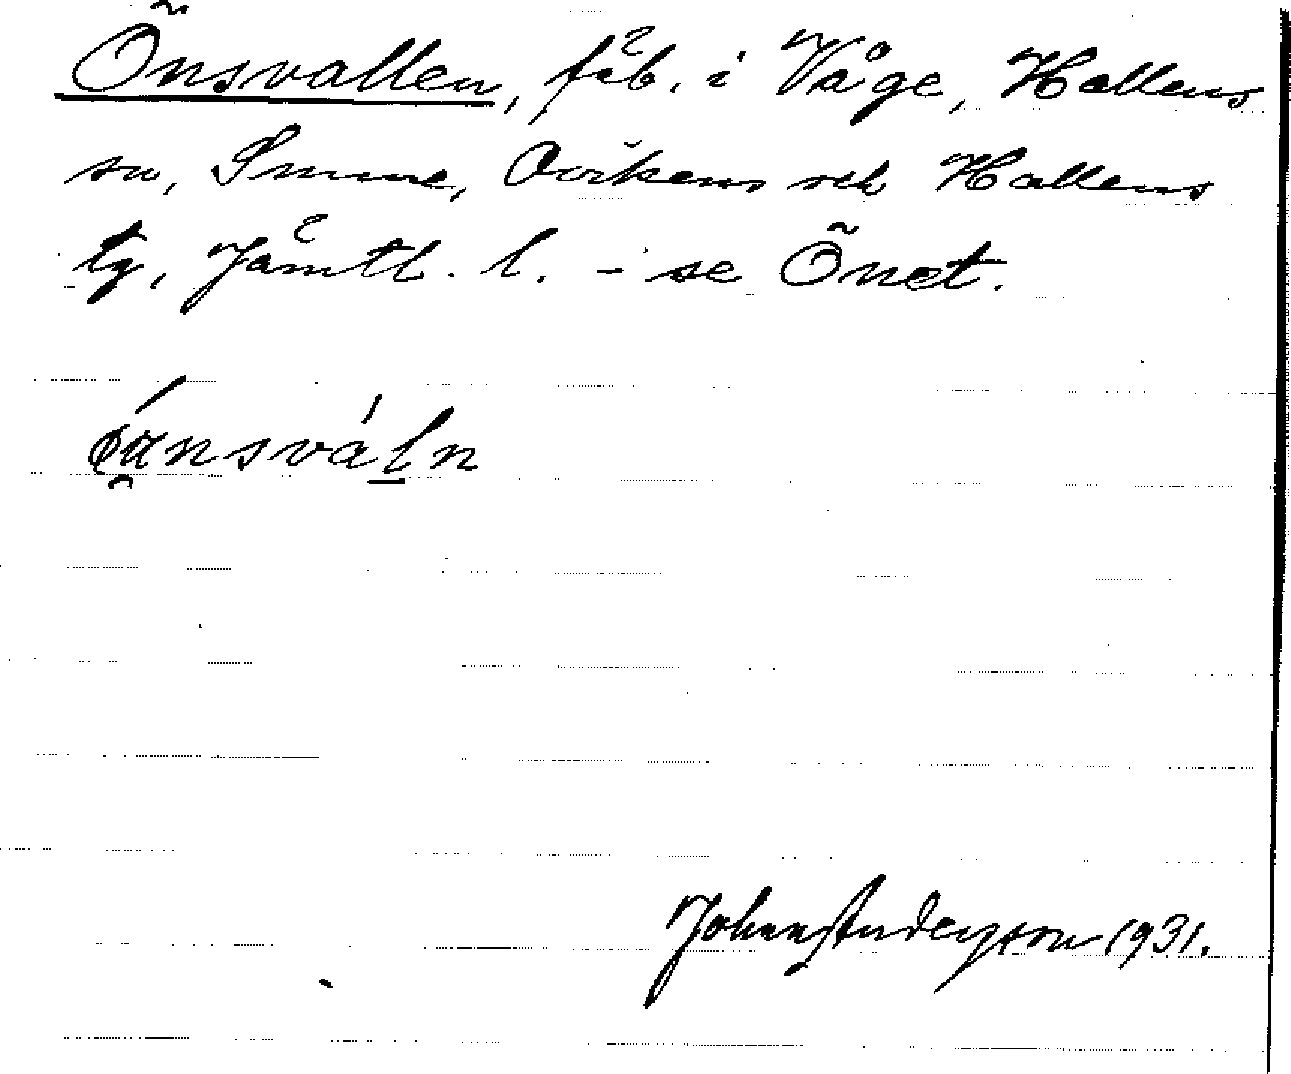 Önsvallen, fäb. i Våge, Hallens
sn, Sunne, Ovikens och Hallens
tg, Jämtl. l. - se Önet.
Johan Anderzson 1931.